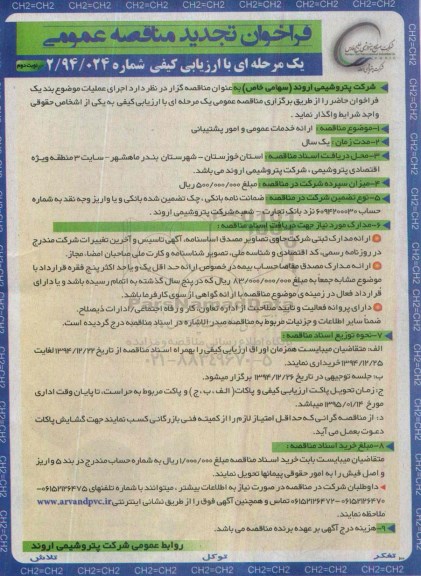 CH2=CH2 CH2=CH2 CH2=CH2 CH2=CH2 CH2=CH2
فراخوان تجدید مناقصه عمومی
یک مرحله ای با ارزیابی کیفی شماره ۲/۹۴/۰۲۴ نوبت دوم
شرکت پتروشیمی اروند (سهامی خاص) به عنوان مناقصه گزار در نظر دارد اجرای عملیات موضوع بند یک
فراخوان حاضر را از طریق برگزاری مناقصه عمومی یک مرحله ای با ارزیابی کیفی به یکی از اشخاص حقوقی
واجد شرایط واگذار نماید.
۱-موضوع مناقصه: ارائه خدمات عمومی و امور پشتیبانی
۲-مدت زمان: یک سال
۳-محل دریافت اسناد مناقصه: استان خوزستان - شهرستان بندر ماهشهر - سایت ۳ منطقه ویژه
اقتصادی پتروشیمی، شرکت پتروشیمی اروند می باشد.
۴-میزان سپرده شرکت در مناقصه: مبلغ ۵۰۰/۰۰۰/۰۰۰ ریال
۵-نوع تضمین شرکت در مناقصه: ضمانت نامه بانکی، چک تضمین شده بانکی و یا واریز وجه نقد به شماره
حساب ۶۰۹۴۲۰۰۰۳۰ نزد بانک تجارت - شعبه شرکت پتروشیمی اروند
۶-مدارک مورد نیاز جهت دریافت اسناد مناقصه:
ارائه مدارک ثبتی شرکت حاوی تصاویر مصدق اساسنامه، آگهی تاسیس و آخرین تغییرات شرکت مندرج
در روزنامه رسمی، کد اقتصادی و شناسه ملی، تصویر شناسنامه و کارت ملی صاحبان امضا، مجاز.
ارائه مدارک مصدق مفاصا حساب بیمه در خصوص ارائه حداقل یک و یا حد اکثر پنج فقره قرارداد با
موضوع مشابه جمعا به مبلغ ۸۳/۰۰۰/۰۰۰/۰۰۰ ریال که در پنج سال گذشته به اتمام رسیده باشد و یا دارای
قرارداد فعال در زمینه ی موضوع مناقصه با ارائه گواهی از سوی کارفرما باشد.
دارای پروانه فعالیت و تایید صلاحیت از اداره تعاون، کار و رفاه اجتماعی/ادارات ذیصلاح.
ضمنا سایر اطلاعات و جزئیات مربوط به مناقصه صدر الاشاره در اسناد مناقصه درج گردیده است.
۷-نحوه توزیع اسناد مناقصه:
الف: متقاضیان میبایست همزمان اوراق ارزیابی کیفی را بهمراه اسناد مناقصه از تاریخ ۱۳۹۴/۱۲/۲۲ لغایت
۱۳۹۴/۱۲/۲۵ خریداری نمایند.
ب: جلسه توجیهی در تاریخ ۱۳۹۴/۱۲/۲۶ برگزار میشود.
ج: زمان تحویل پاکت ارزیابی کیفی و پاکات (الف، ب، ج) و پاکت مربوط به حراست، تا پایان وقت اداری
مورخ ۱۳۹۵/۰۱/۱۴ میباشد.
د: از مناقصه گرانی که حداقل امتیاز لازم را از کمیته فنی بازرگانی کسب نمایند جهت گشایش پاکات
دعوت بعمل می آید.
۸-مبلغ خرید اسناد مناقصه:
متقاضیان میبایست بابت خرید اسناد مناقصه مبلغ ۱/۰۰۰/۰۰۰ ریال به شماره حساب مندرج در بند ۵ واریز
و اصل فیش را به امور حقوقی پیمانها تحویل نمایند.
داوطلبان شرکت در مناقصه در صورت نیاز به اطلاعات بیشتر، میتوانند با شماره تلفنهای ۰۶۱۵۲۱۲۶۴۷۵-
۰۶۱۵۲۱۲۶۴۷۲-۰۶۱۵۲۱۲۶۴۷۰ تماس و همچنین آگهی فوق را از طریق نشانی اینترنتی www.arvandpvc.ir
ملاحظه نمایند.
۹-هزینه درج آگهی بر عهده برنده مناقصه می باشد.
روابط عمومی شرکت پتروشیمی اروند
تفکر توکل تلاش
CH2=CH2 CH2=CH2 CH2=CH2 CH2=CH2 CH2=CH2